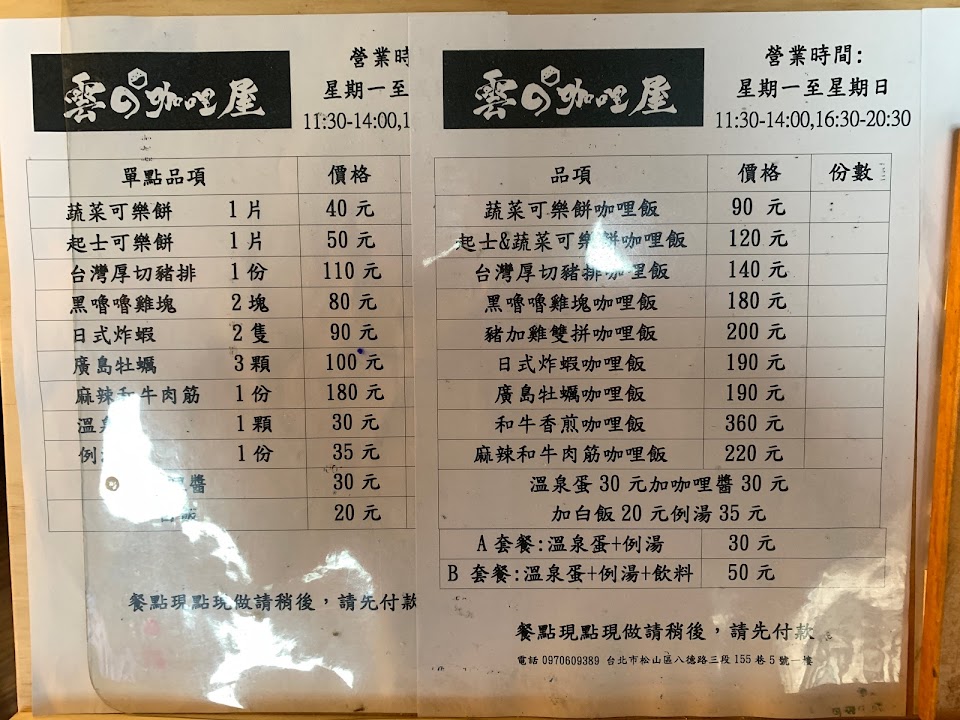 雲の咖哩屋
營業時
星期一至
11:30-14:00,1
單點品項 價格
蔬菜可樂餅 1片 40元
起士可樂餅 1片 50元
台灣厚切豬排 1份 110元
黑嚕嚕雞塊 2塊 80元
日式炸蝦 2隻 90元
廣島牡蠣 3顆 100元
麻辣和牛肉筋 1份 180元
溫 1顆 30元
例 1份 35元
醬 30元
20元
餐點現點現做請稍後，請先付款
雲の咖哩屋
營業時間:
星期一至星期日
11:30-14:00,16:30-20:30
品項 價格 份數
蔬菜可樂餅咖哩飯 90元
起士&蔬菜可樂餅咖哩飯 120元
台灣厚切豬排咖哩飯 140元
黑嚕嚕雞塊咖哩飯 180元
豬加雞雙拼咖哩飯 200元
日式炸蝦咖哩飯 190元
廣島牡蠣咖哩飯 190元
和牛香煎咖哩飯 360元
麻辣和牛肉筋咖哩飯 220元
溫泉蛋30元加咖哩醬30元
加白飯20元例湯35元
A套餐:溫泉蛋+例湯 30元
B 套餐:溫泉蛋+例湯+飲料 50元
餐點現點現做請稍後，請先付款
電話 0970609389 台北市松山區八德路三段155巷5號一樓